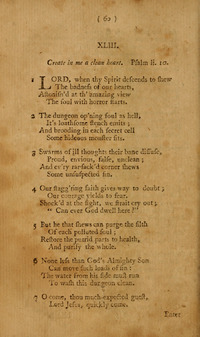 ( 62 )
XLIII.
Create in me a clean heart. Psalm li. 10.
1 LORD, when thy Spirit descends to shew
The badness of our hearts,
Astonish'd at th' amazing view
The soul with horror starts.
2 The dungeon op'ning foul as hell,
It's loathsome stench emits;
And brooding in each secret cell
Some hideous monster sits.
3 Swarms of ill thoughts their bane diffuse,
Proud, envious, false, unclean;
And ev'ry ransack'd corner shews
Some unsuspected sin.
4 Our stagg'ring faith gives way to doubt;
Our courage yields to fear,
Shock'd at the sight, we strait cry out;
" Can ever God dwell here?"
5 But he that shews can purge the filth
Of each polluted soul;
Restore the putrid parts to health,
And purify the whole.
6 None less than God's Almighty Son
Can move such loads of sin:
The water from his side must run
To wash this dungeon clean.
7 O come, thou much-expected guest,
Lord Jesus, quickly come.
Enter